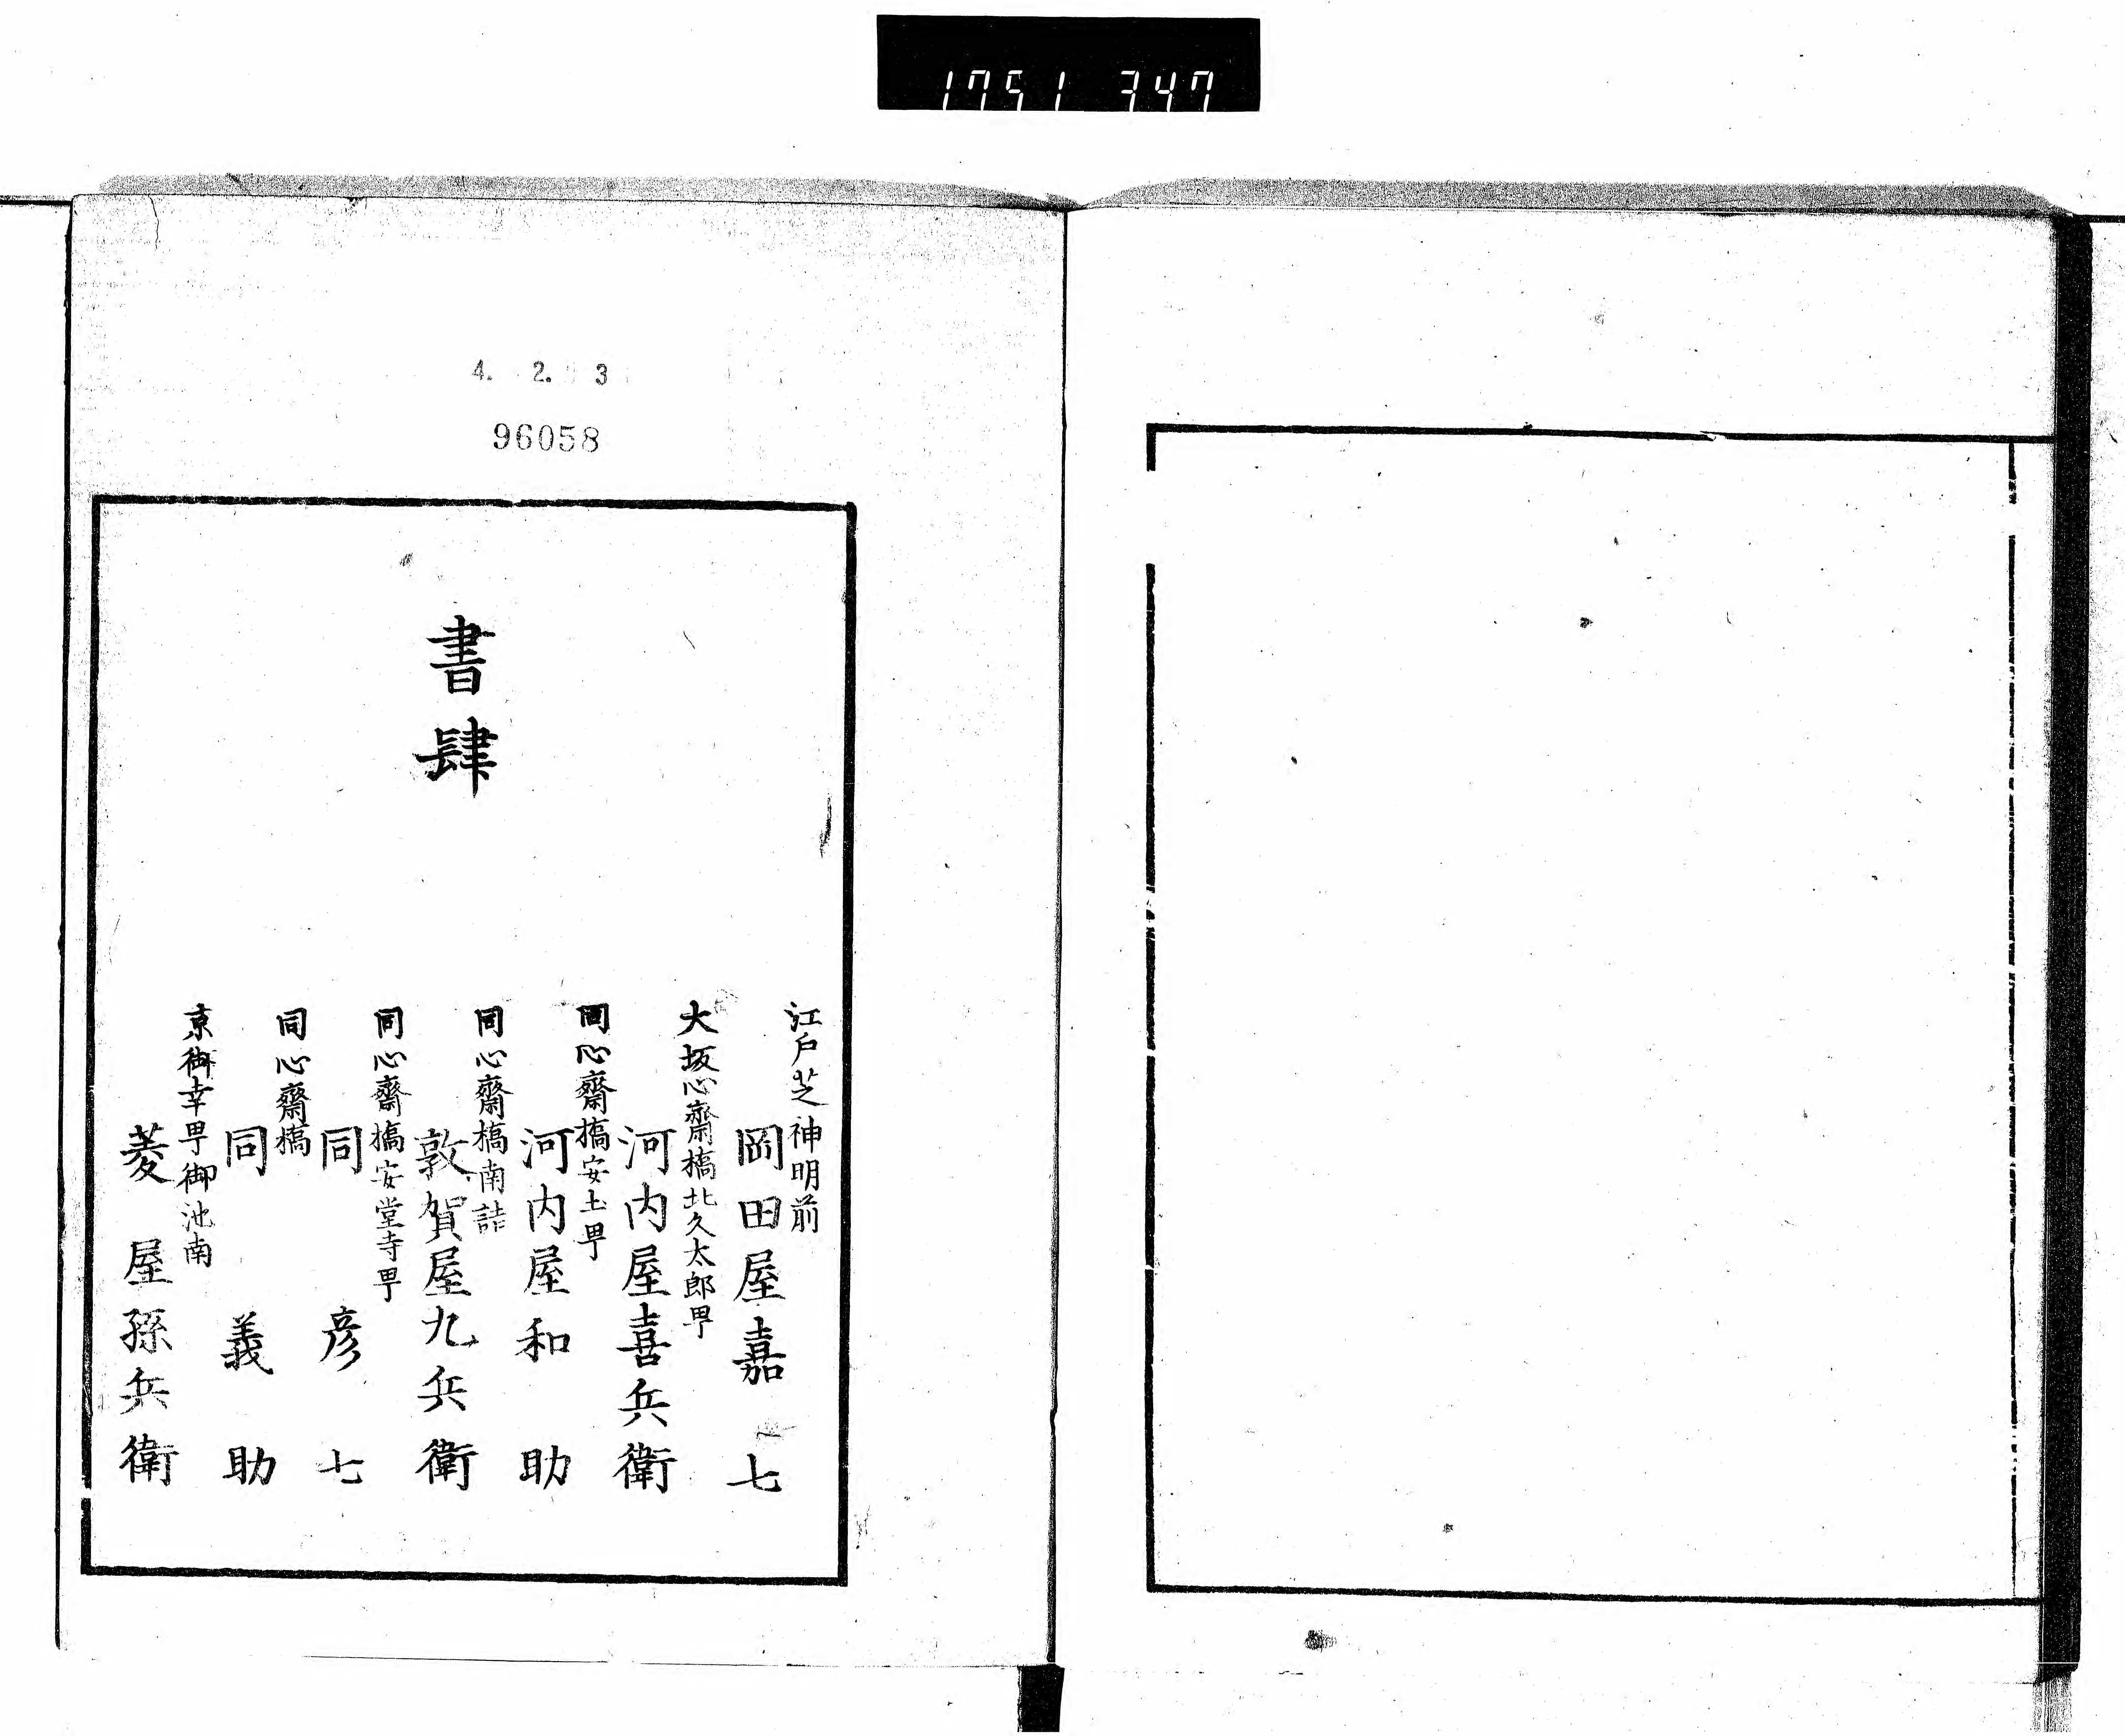 1751 347
4. 2. 3
96058
書肆
江戸芝神明前
岡田屋嘉七
大坂心齋橋北久太郎甼
河内屋喜兵衛
同心齋橋安土甼
河内屋和助
同心齋橋南詰
敦賀屋九兵衛
同心齋橋安堂寺甼
同彦七
同心齋橋
同義助
京御幸甼御池南
菱屋孫兵衛